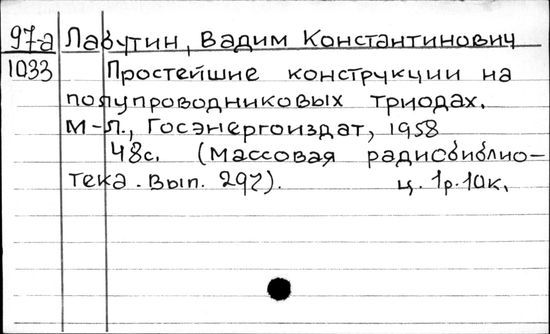 97-а Лабутин, Вадим Константинович
1033 Простейшие конструкции на
полупроводниковых триодах.
М-Л., Госэнергоиздат, 1958
48с. (Массовая радиобиблио-
тека. Вып. 297). ц. 1р.10к.